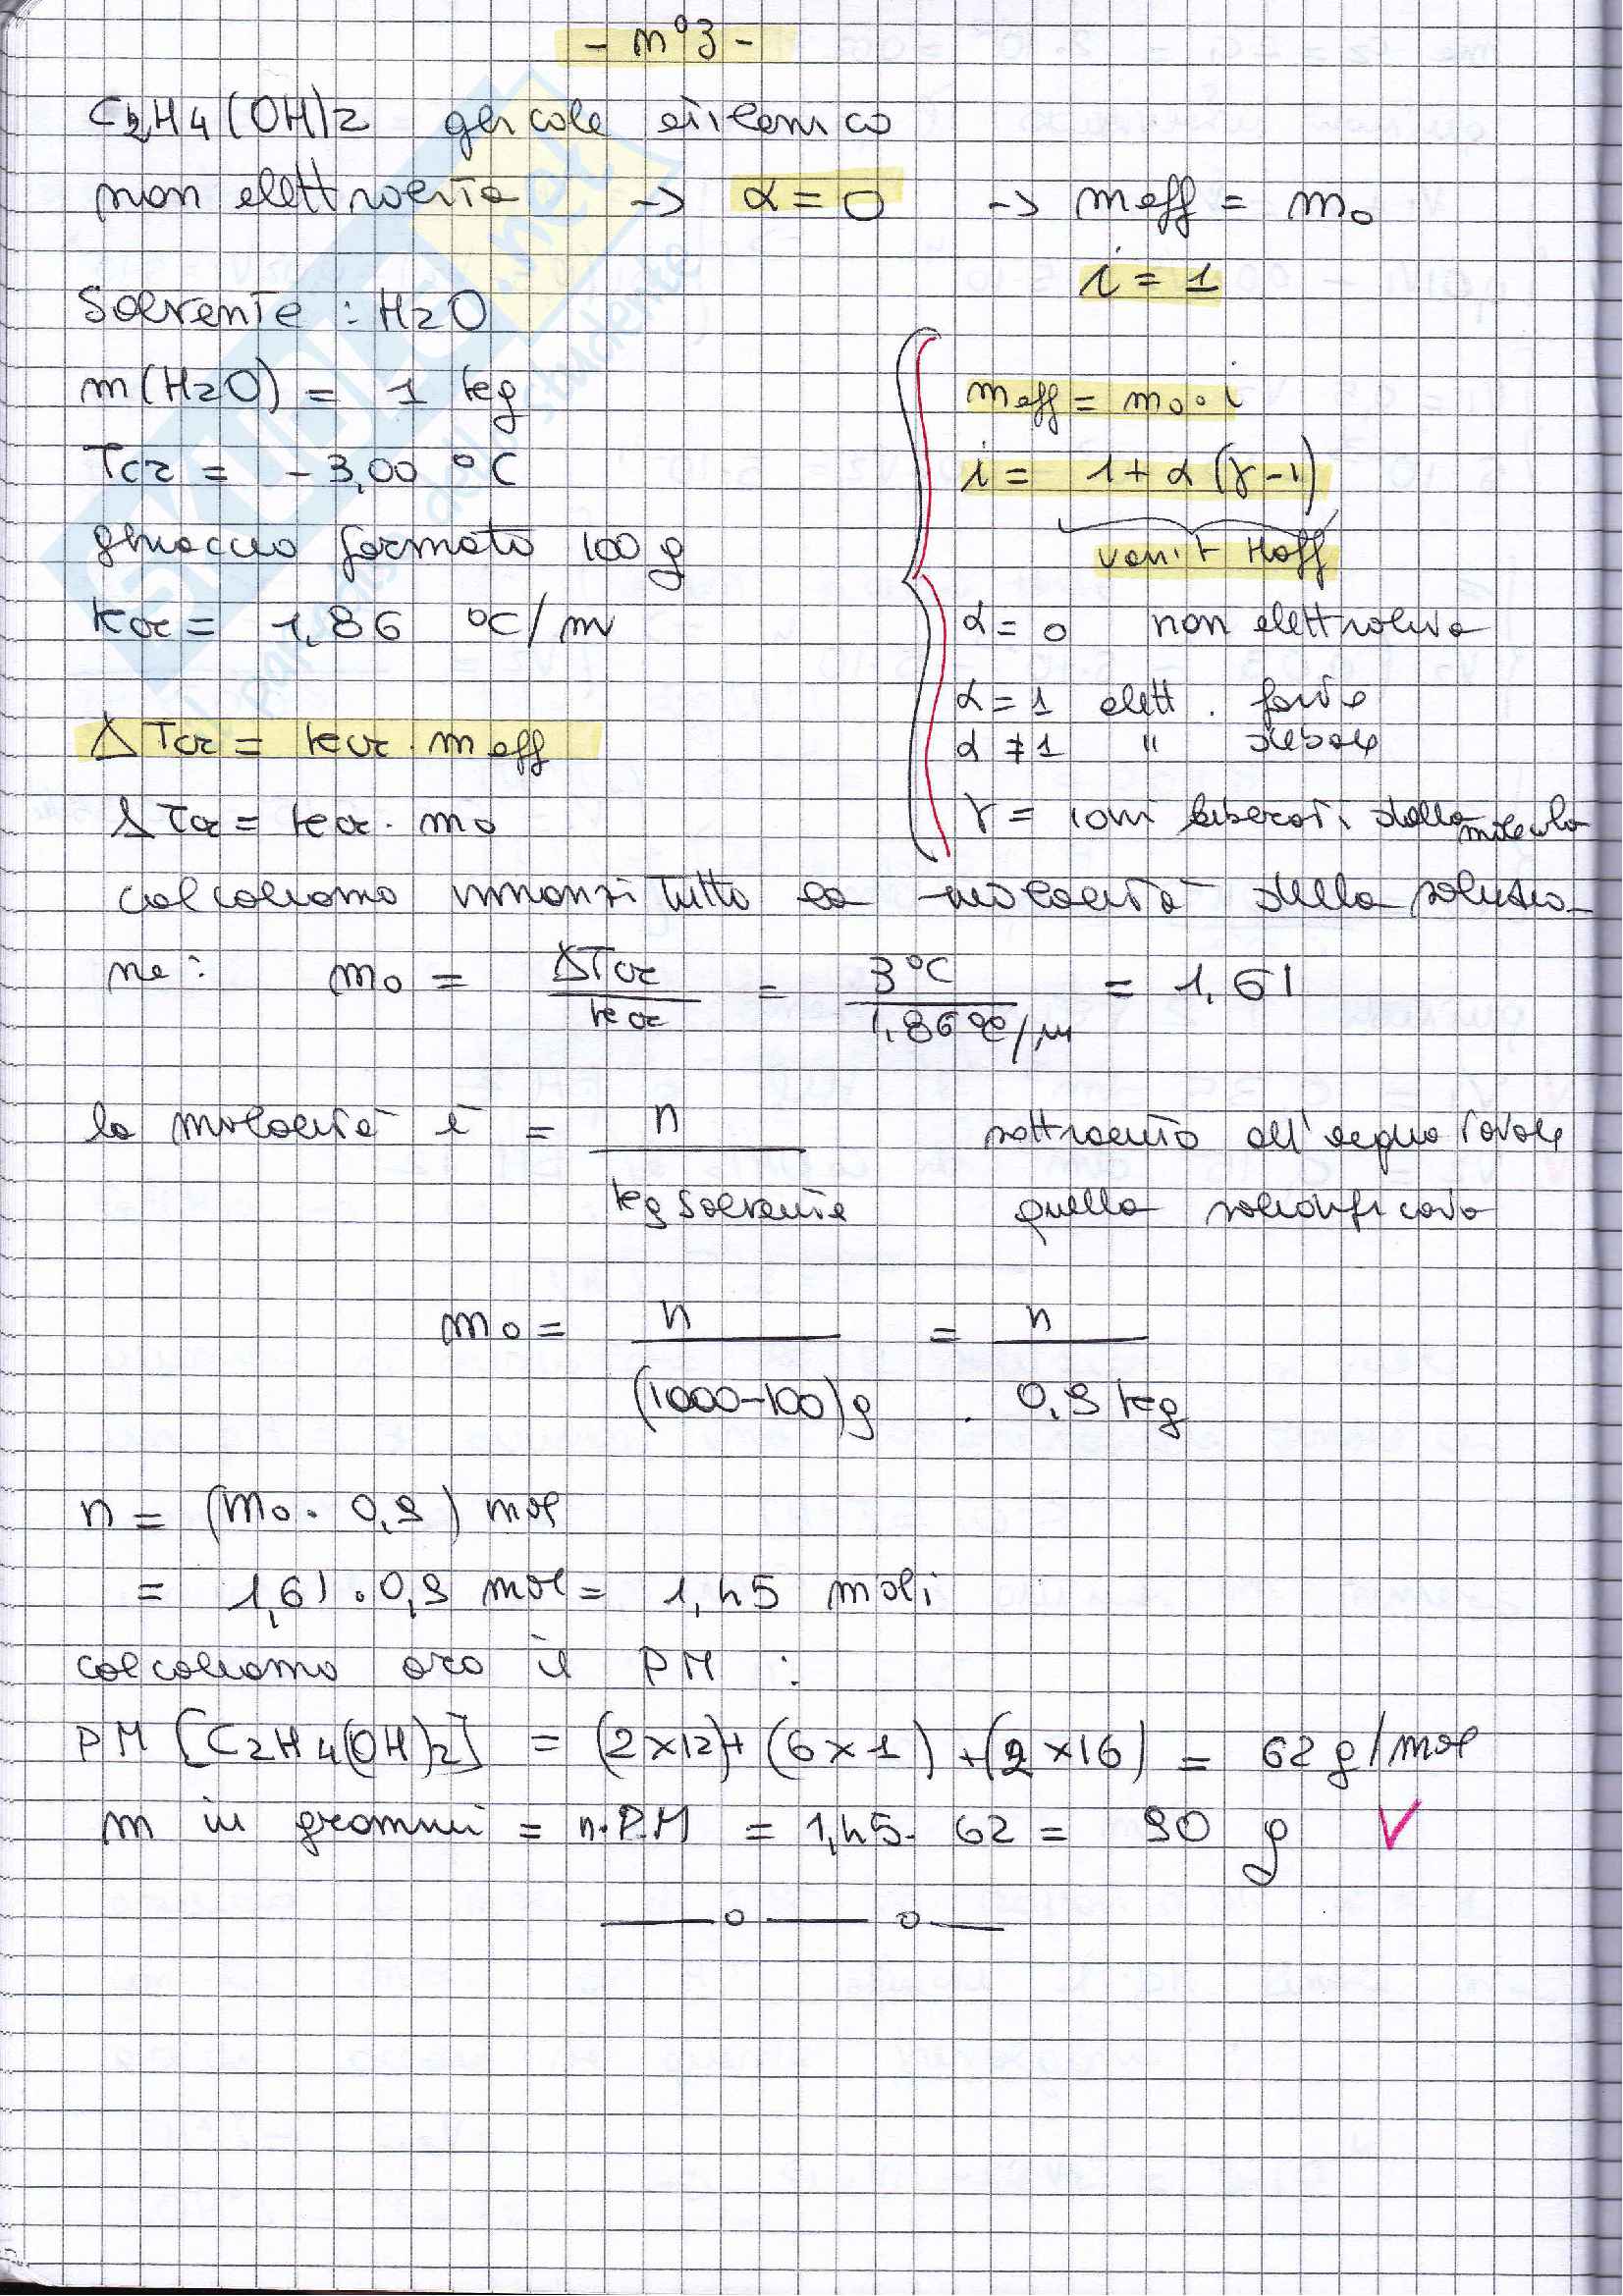 - n°3 -
C2H4(OH)2 glicole etilenico
non elettrolita -> α = 0 -> meff = mo
i = 1
Solvente : H2O
m(H2O) = 1 kg
Tcr = - 3,00 °C
ghiaccio formato 100 g
kcr = 1,86 °C/m
ΔTcr = kcr · meff
ΔTcr = kcr · mo
meff = mo · i
i = 1 + α (γ - 1)
van't Hoff
α = 0 non elettrolita
α = 1 elett. forte
α ≠ 1 " debole
γ = ioni liberati dalla molecola
calcoliamo innanzi tutto la molalità della soluzio_
ne: mo = ΔTcr / kcr = 3°C / 1,86°C/m = 1,61
la molalità è = n / kg solvente sottraendo all'acqua totale
quella solidificata
mo = n / (1000-100)g = n / 0,9 kg
n = (mo · 0,9) mol
= 1,61 · 0,9 mol = 1,45 moli
calcoliamo ora il PM :
PM [C2H4(OH)2] = (2x12)+ (6x1) +(2x16) = 62 g/mol
m in grammi = n·P.M = 1,45 · 62 = 90 g ✓
SKUOLA.net